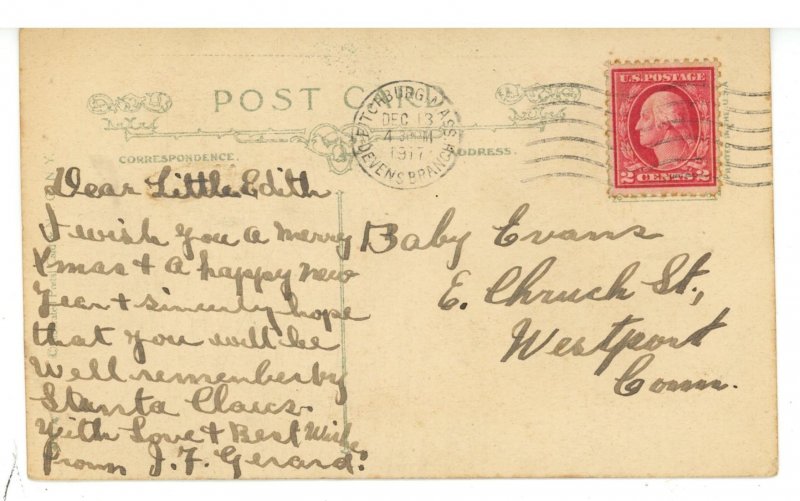 POST CARD
CORRESPONDENCE.
ADDRESS.
FITCHBURG, MASS.
DEC 13
4 30 PM
1917
DEVENS BRANCH
U.S. POSTAGE
2 CENTS 2
Dear Little Edith
I wish you a merry
Xmas + a happy new
Year + sincerly hope
that you will be
well remember by
Stanta Claics.
With Love + Best Wishe
from J. F. Gerard.
Baby Evans
E. Chruch St.,
Westport
Conn.